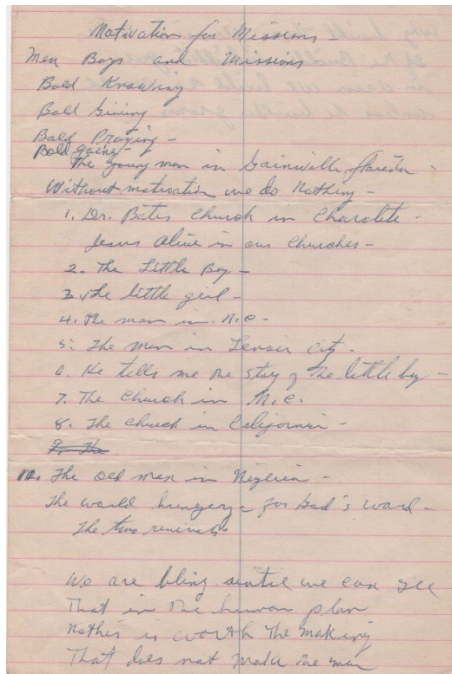 Motivation for Missions -
Men Boys and Missions
Bold Knowing
Bold Giving
Bold Praying -
Bold going -
The young man in Gainville -
Without motivation we do Nothing -
1. Dr. Bates Church in Charolite -
Jesus Alive in our Churches -
2. The Little Boy -
3. The little girl -
4. The man in N.C. -
5. The Man in City -
6. He tells me the story of the little boy -
7. The Church in N.C.
8. The Church in California -
9. The
10. The old man in Nigeria -
The world hungery - for God's word -
The two revivals
We are bling until we can see
That in the human plan
Nothis is worth the making
That does not make the man